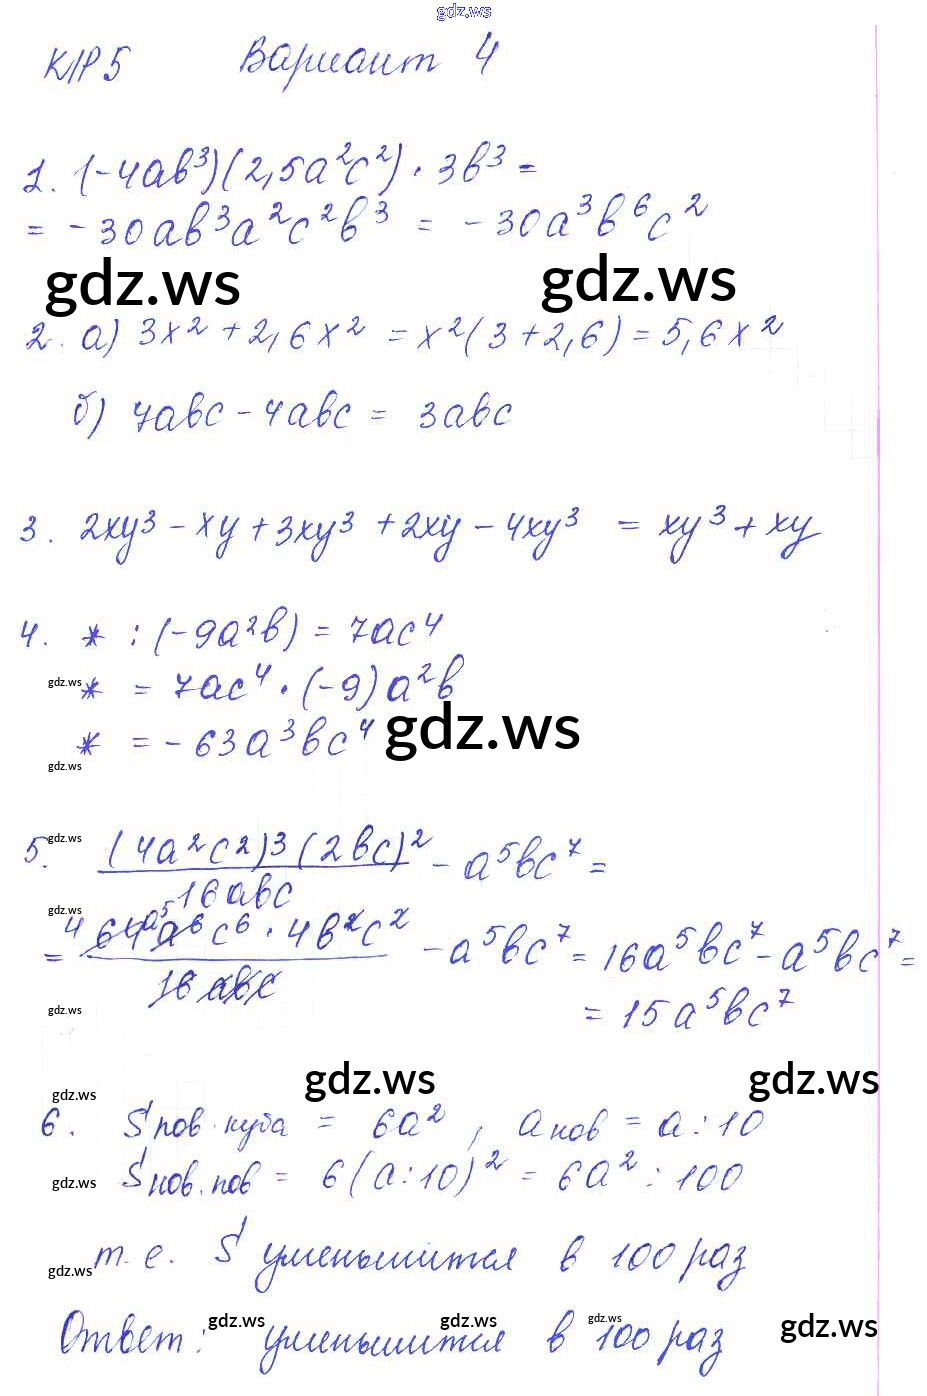 gdz.ws
К/Р 5 Вариант 4
1. (-4ab³)(2,5a²c²)·3b³ =
= -30ab³a²c²b³ = -30a³b⁶c²
gdz.ws gdz.ws
2. а) 3x² + 2,6x² = x²(3+2,6) = 5,6x²
б) 7abc - 4abc = 3abc
3. 2xy³ - xy + 3xy³ + 2xy - 4xy³ = xy³ + xy
4. * : (-9a²b) = 7ac⁴
gdz.ws
* = 7ac⁴·(-9)a²b
gdz.ws
* = -63a³bc⁴
gdz.ws
gdz.ws
5. (4a²c²)³(2bc)²/16abc - a⁵bc⁷ =
gdz.ws
= 4 64a⁵a⁶c⁶·4b²c²/16abc - a⁵bc⁷ = 16a⁵bc⁷ - a⁵bc⁷ =
gdz.ws
= 15a⁵bc⁷
gdz.ws gdz.ws
gdz.ws
6. Sпов.куба = 6a², aнов = a:10
gdz.ws
Sнов.пов = 6(a:10)² = 6a² : 100
т.е. S уменьшится в 100 раз
gdz.ws
gdz.ws gdz.ws gdz.ws gdz.ws
Ответ: уменьшится в 100 раз